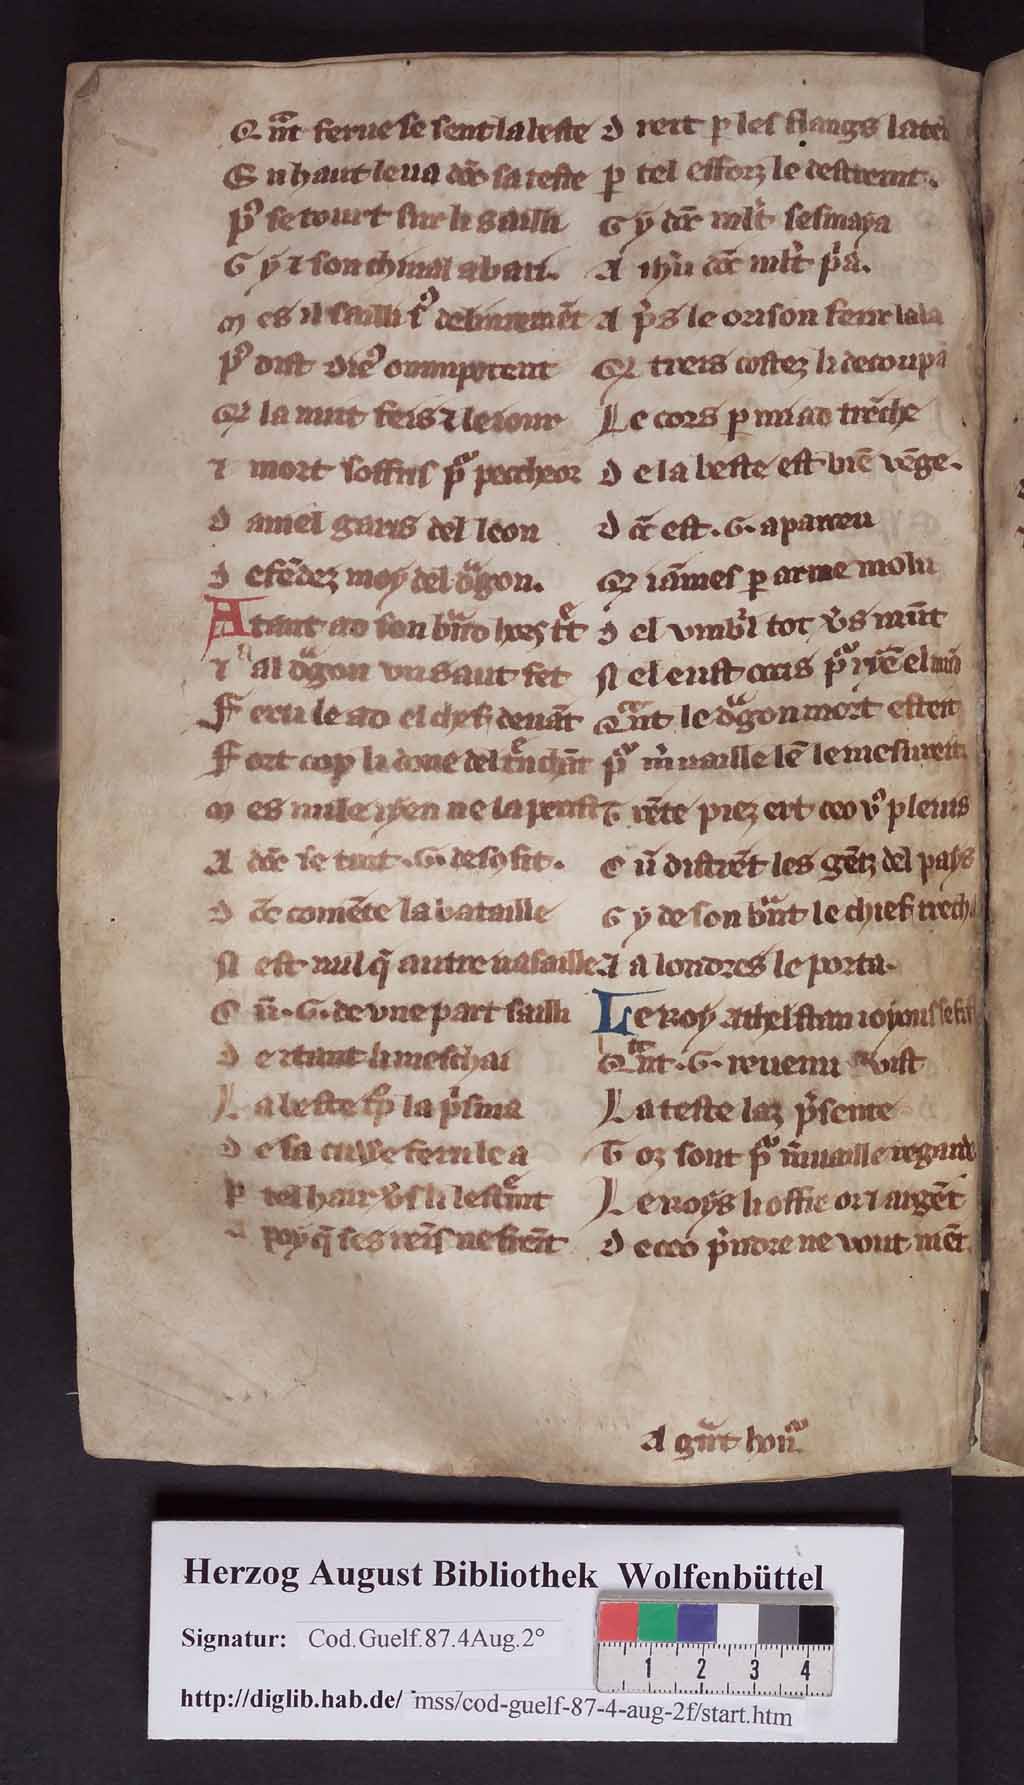 Q nͣt ferue se sent la beste
E n haut leua dōc sa teste
p̉ se tourt sur li sailli
G ẏ ⁊ son chiual abati.
M es il sailli sꝰ deliuremēt
p̉ dist dieꝰ omnipotent
Q la nuit feis ⁊ le iour
⁊ mort soffris pᷓ peccheor
D aniel garis del leon
D efēdez moẏ del dᷓgon.
A tant ad son bᷓnd hors tͤt
⁊ al dᷓgon vn saut fet
F eru le ad el chef deuāt
F ort cop li done del tͤnchāt
M es nule rẏen ne la prist
A dōc se tint .G. desosit.
D ōc comēte la bataille
N est nul q̄ autre uasaille
C ū .G. de vne part sailli
D e ...tant li meschai
L a beste sꝰ la p̉sma
D e sa cuwe feru le a
P tel hair v̉s li lestͤint
A poẏ q̄ ses reīs ne freīt
D reit ꝑ les flangs la ...
ꝑ tel efforz le destreint.
G ẏ dōc ml̉t sesmaẏa
A ih̄u dōc ml̉t p̉a.
A p̉s le orison ferir la la
Q treis costez li decoupa
L e cors ꝑ mi ad trēche
D e la beste est biē vēge.
D ōc est .G. aparceu
Q iāmes ꝑ arme molu
D el vmb̉l tot v̉s mūt
N el eust occis pᷓ rẏē el mūd
Qᷓnt le dᷓgon mort esteit
pᷓ m̉uaille lē le mesureit
T rēte piez ert ceo vꝰ pleuis
C ū distrēt les gētz del paẏs
G ẏ de son bᷓnt le chief trecha
⁊ a londres le porta.
Le roẏ Athelstan ioẏous se fist
Qᷓnt .G. reuenu vist
L a teste laz p̉sente
T oz sont pᷓ m̉uaille regarde
L e roẏs li offre or ⁊ argēt
D e ceo p̉ndre ne vout niēt.
A gᷓnt honͬ
Herzog August Bibliothek Wolfenbüttel
Signatur: Cod.Guelf.87.4Aug.2°
1 2 3 4
http://diglib.hab.de/ mss/cod-guelf-87-4-aug-2f/start.htm